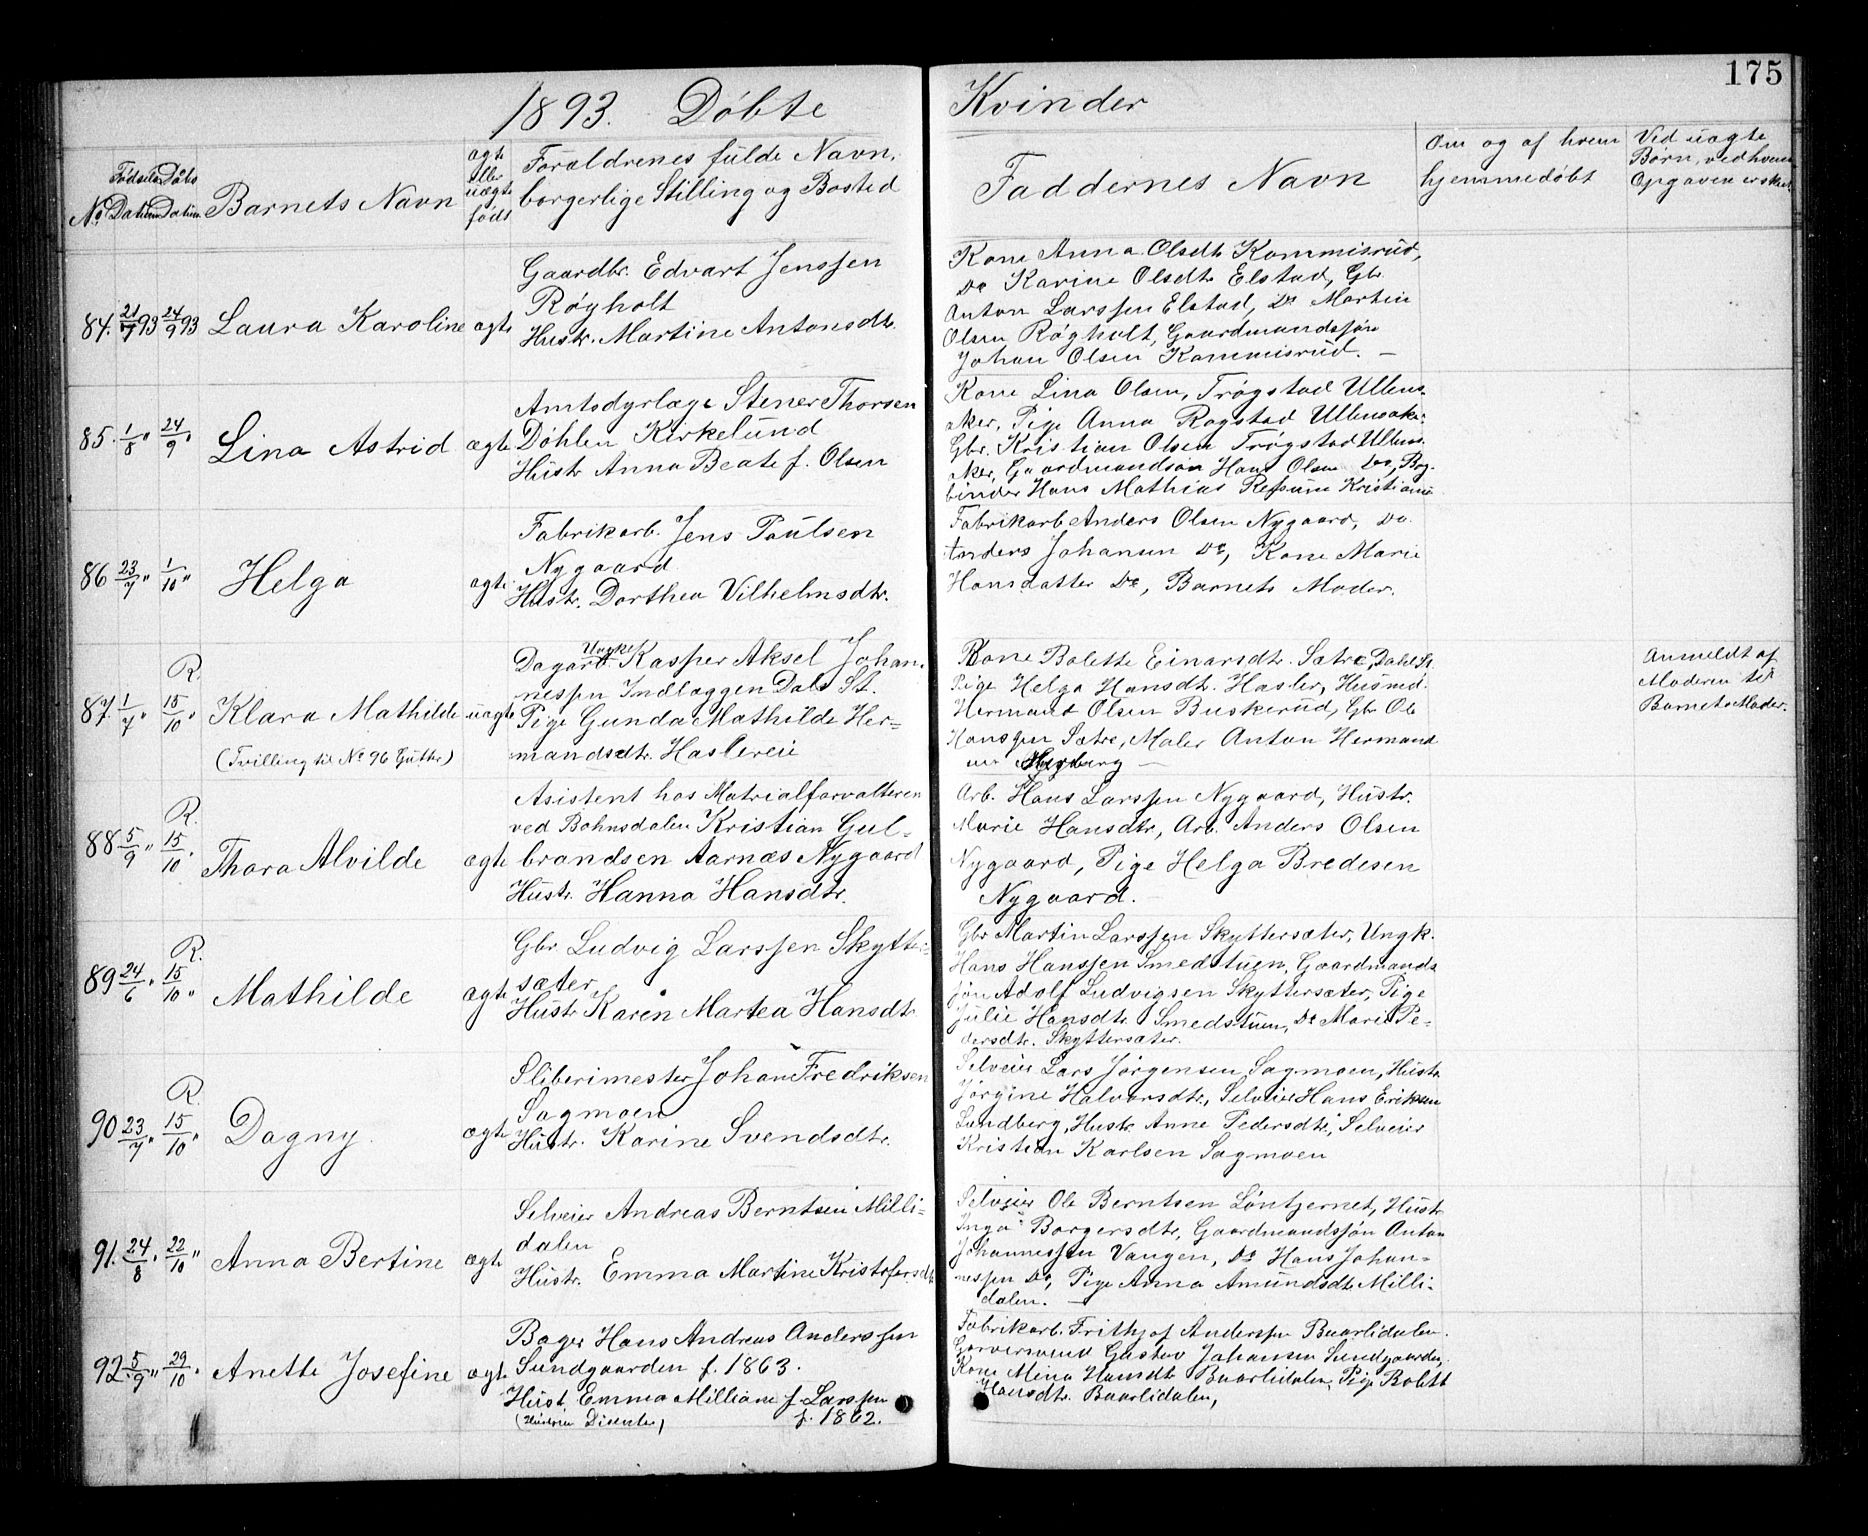 175
1893. Døbte Kvinder
No Fødsels Datum Daabs Datum Barnets Navn ægte eller uægte født Forældrenes fulde Navn, borgerlige Stilling og Bosted Faddernes Navn Om og af hvem hjemmedøbt Ved uægte Børn, ved hvem Opgaven er sket
84. 21/7 93 24/9 93 Laura Karoline ægte
Gaardbr. Edvart Jenssen
Røgholt
Hustr. Martine Antonsdtr.
Kone Anna Olsdtr Kommisrud,
Do Karine Olsdtr Elstad, Gbr.
Anton Larssen Elstad, Do Martin
Olsen Røgholt, Gaardmandssøn
Johan Olsen Kommisrud. —
85. 1/8 " 24/9 " Lina Astrid ægte
Amtsdyrlæge Stener Thorsen
Døhlen Kirkelund
Hustr Anna Beate f. Olsen
Kone Lina Olsen, Trøgstad Ullens-
aker, Pige Anna Rogstad Ullensaker
Gbr. Kristian Olsen Trøgstad Ullens-
aker, Gaardmandsøn Hans Olsen Do, Bog-
binder Hans Mathias Refsum Kristiania
86 23/7 " 1/10 " Helga ægte
Fabrikarb. Jens Paulsen
Nygaard
Hustr. Dorthea Vilhelmsdtr.
Fabrikarb Anders Olsen Nygaard, Do.
Anders Johansen Do, Kone Marie
Hansdatter Do, Barnets Moder.
87. 1/7 " R. 15/10 " Klara Mathilde uægte
(Tvilling til No 96 Gutter)
Ungk.
Dagarb Kasper Aksel Johan-
nessen Indlæggen Dals St.
Pige Gunda Mathilde Her-
mandsdtr. Haslereie
Kone Bolette Einarsdtr. Sætre, Dahl St.
Pige Helga Hansdtr. Hasler, Husmd.
Hermand Olsen Buskerud, Gbr Ole
Hanssen Sætre, Maler Anton Hermand
sen Myrberg —
Anmeldt af
Moderen til
Barnets Moder.
88 5/9 " R. 15/10 " Thora Alvilde ægte
Asistent hos Matrialforvalteren
ved Bohnsdalen Kristian Gul-
brandsen Aarnæs Nygaard
Hustr. Hanna Hansdtr.
Arb. Hans Larssen Nygaard, Hustr.
Marie Hansdtr, Arb. Anders Olsen
Nygaard, Pige Helga Bredesen
Nygaard. —
89 24/6 " R. 15/10 " Mathilde ægte
Gbr Ludvig Larssen Skytter-
sæter
Hustr Karen Martea Hansdtr
Gbr Martin Larssen Skyttersæter, Ungk.
Hans Hanssen Smedstuen, Gaardmands
søn Adolf Ludvigsen Skyttersæter, Pige
Julie Hansdtr. Smedstuen, Do Marie Pe-
dersdtr. Skyttersæter.
90 23/7 " R. 15/10 " Dagny ægte
Sliberimester Johan Fredriksen
Sagmoen
Hustr. Karine Svendsdtr.
Selveier Lars Jørgensen Sagmoen, Hustr
Jørgine Halvorsdtr., Selveier Hans Eriksen
Lundberg, Hustr. Anne Pedersdtr., Selveier
Kristian Karlsen Sagmoen
91. 24/8 " 22/10 " Anna Bertine ægte
Selveier Andreas Berntsen Milli-
dalen
Hustr. Emma Martine Kristofersdtr
Selveier Ole Berntsen Løntjernet, Hustr
Inga Borgersdtr, Gaardmandssøn Anton
Johannessen Vangen, Do Hans Johan-
nessen Do, Pige Anna Amundsdtr Milli-
dalen. —
92 5/9 " 29/10 " Anette Josefine ægte
Bager Hans Andreas Anderssen
Sundgaarden f. 1863.
Hust. Emma Milliane f. Larssen
(Husteren Disenter) f. 1862.
Fabrikarb. Frithjof Anderssen Baarlidalen.
Garversvend Gustav Johansen Sundgaarden,
Kone Mina Hansdtr Baarlidalen, Pige Bolett
Hansdtr. Baarlidalen,